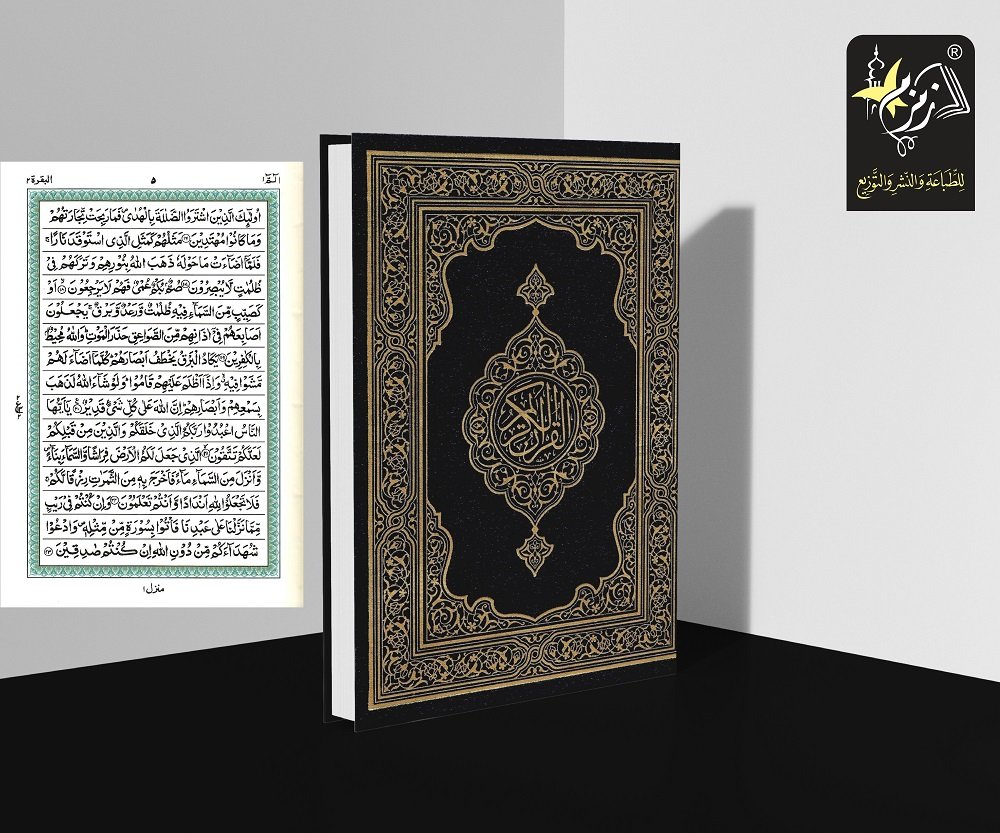 الٓمّٓ ١
٥
البقرة ٢
اُولٰٓئِكَ الَّذِيْنَ اشْتَرَوُا الضَّلٰلَةَ بِالْهُدٰى فَمَا رَبِحَتْ تِّجَارَتُهُمْ
وَمَا كَانُوْا مُهْتَدِيْنَ ۝١٦ مَثَلُهُمْ كَمَثَلِ الَّذِى اسْتَوْقَدَ نَارًا ۚ
فَلَمَّآ اَضَآءَتْ مَا حَوْلَهٗ ذَهَبَ اللّٰهُ بِنُوْرِهِمْ وَتَرَكَهُمْ فِىْ
ظُلُمٰتٍ لَّا يُبْصِرُوْنَ ۝١٧ صُمٌّۢ بُكْمٌ عُمْىٌ فَهُمْ لَا يَرْجِعُوْنَ ۝١٨ اَوْ
كَصَيِّبٍ مِّنَ السَّمَآءِ فِيْهِ ظُلُمٰتٌ وَّرَعْدٌ وَّبَرْقٌ ۚ يَجْعَلُوْنَ
اَصَابِعَهُمْ فِىْٓ اٰذَانِهِمْ مِّنَ الصَّوَاعِقِ حَذَرَ الْمَوْتِ ؕ وَاللّٰهُ مُحِيْطٌۢ
بِالْكٰفِرِيْنَ ۝١٩ يَكَادُ الْبَرْقُ يَخْطَفُ اَبْصَارَهُمْ ؕ كُلَّمَآ اَضَآءَ لَهُمْ
مَّشَوْا فِيْهِ ۙ وَاِذَآ اَظْلَمَ عَلَيْهِمْ قَامُوْا ؕ وَلَوْ شَآءَ اللّٰهُ لَذَهَبَ
بِسَمْعِهِمْ وَاَبْصَارِهِمْ ؕ اِنَّ اللّٰهَ عَلٰى كُلِّ شَىْءٍ قَدِيْرٌ ۝٢٠ يٰٓاَيُّهَا
النَّاسُ اعْبُدُوْا رَبَّكُمُ الَّذِىْ خَلَقَكُمْ وَالَّذِيْنَ مِنْ قَبْلِكُمْ
لَعَلَّكُمْ تَتَّقُوْنَ ۝٢١ الَّذِىْ جَعَلَ لَكُمُ الْاَرْضَ فِرَاشًا وَّالسَّمَآءَ بِنَآءً ۪
وَّاَنْزَلَ مِنَ السَّمَآءِ مَآءً فَاَخْرَجَ بِهٖ مِنَ الثَّمَرٰتِ رِزْقًا لَّكُمْ ۚ
فَلَا تَجْعَلُوْا لِلّٰهِ اَنْدَادًا وَّاَنْتُمْ تَعْلَمُوْنَ ۝٢٢ وَاِنْ كُنْتُمْ فِىْ رَيْبٍ
مِّمَّا نَزَّلْنَا عَلٰى عَبْدِنَا فَاْتُوْا بِسُوْرَةٍ مِّنْ مِّثْلِهٖ ۪ وَادْعُوْا
شُهَدَآءَكُمْ مِّنْ دُوْنِ اللّٰهِ اِنْ كُنْتُمْ صٰدِقِيْنَ ۝٢٣
منزل ١
القرآن الكريم
زمزم ®
لِلطِّبَاعَةِ وَالنَّشْرِ وَالتَّوْزِيعِ